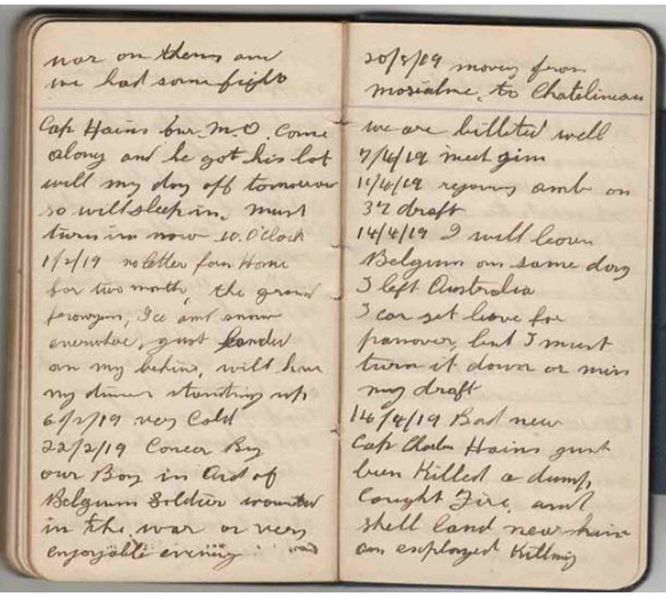 war on them and
we had some fight
Cap Hains our M.O. Come
along and he got his lot
well my day off tomorrow
so will sleep in, must
turn in now 10. O'Clock
1/2/19 no letter from Home
for two month, the ground
Ice and snow
gust landed
on my behin, will have
my dinner standing up
6/2/19 very Cold
22/2/19 Concer By
our Boy in Aid of
Belgium Soldier wounded
in the war or very
enjoyable evening
20/3/19 moving from
morialme, to Chatelineau
we are billited well
7/4/19 meet gim
11/4/19 amb on
37 draft
14/4/19 I will leave
Belgium on same day
I left Australia
I can get leave for
panover, but I must
turn it down or miss
my draft
14/4/19 Bad new
Cap Charles Hains gust
been Killed a dump,
Caught Fire, and
shell land near him
an exployed Killing